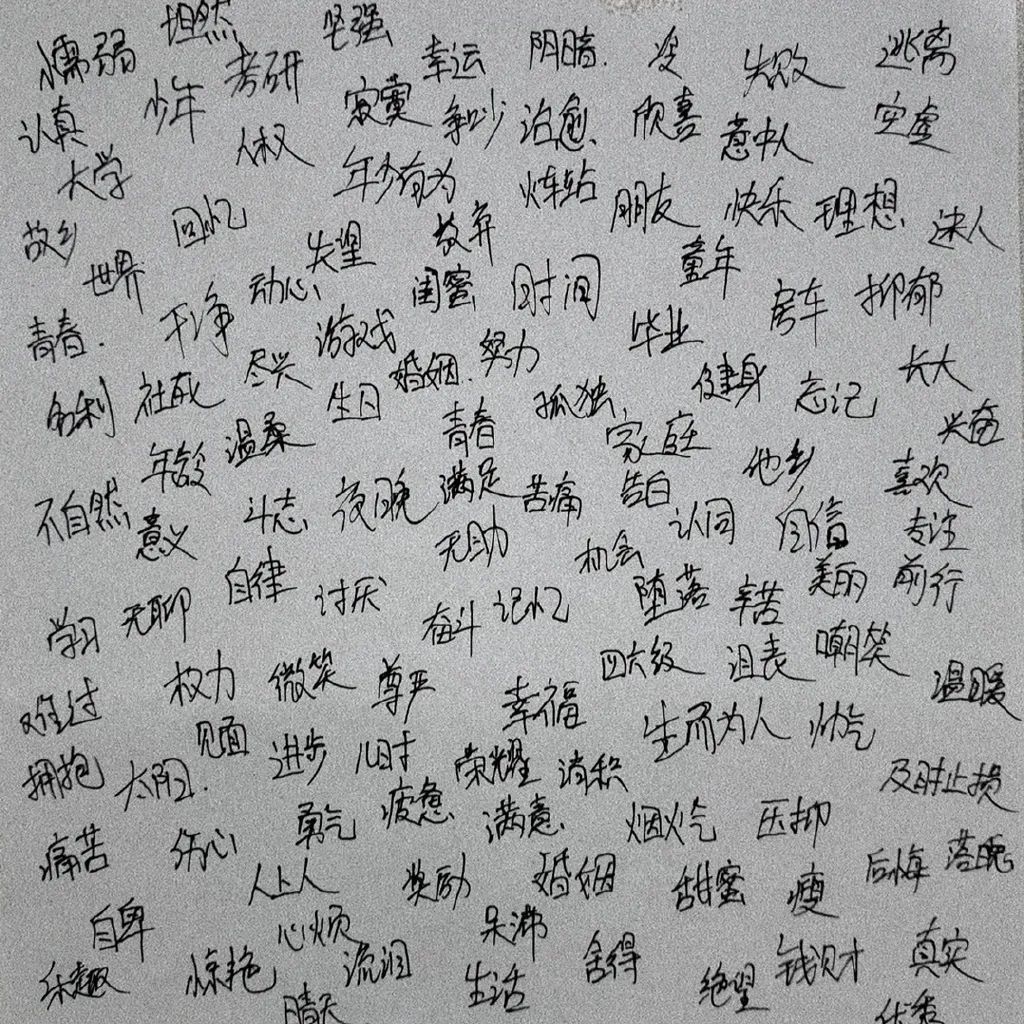 懦弱 坦然 坚强 幸运 阴暗. 没 失败 逃离
认真 少年 考研 寂寞 争吵 治愈 欣喜 意中人 空虚
大学 人权 年少有为 炼站 朋友 快乐 理想 迷人
故乡 回忆 失望 放弃 童年
世界 动心 闺蜜 时间 房车 抑郁
青春. 干净 游戏 努力 毕业
名利 社死 尽兴 生日 婚姻. 孤独 健身 忘记 长大
年龄 温柔 青春 家庭 他乡 兴奋
不自然 意义 斗志 夜晚 满足 苦痛 告白 认同 自信 喜欢 专注
无助 机会
学习 无聊 自律 讨厌 奋斗 记忆 堕落 辛苦 美丽 前行
难过 权力 微笑 尊严 幸福 四六级 泪表 嘲笑 温暖
拥抱 太阳. 见面 进步 儿时 荣耀 消积 生而为人 帅气 及时止损
痛苦 伤心 勇气 疲惫 满意 烟火气 压抑 后悔 落魄
人上人 奖励 婚姻 甜蜜 瘦
自卑 心烦 呆滞 舍得 钱财 真实
乐趣 惊艳 流泪 生活 绝望
晴天 优秀